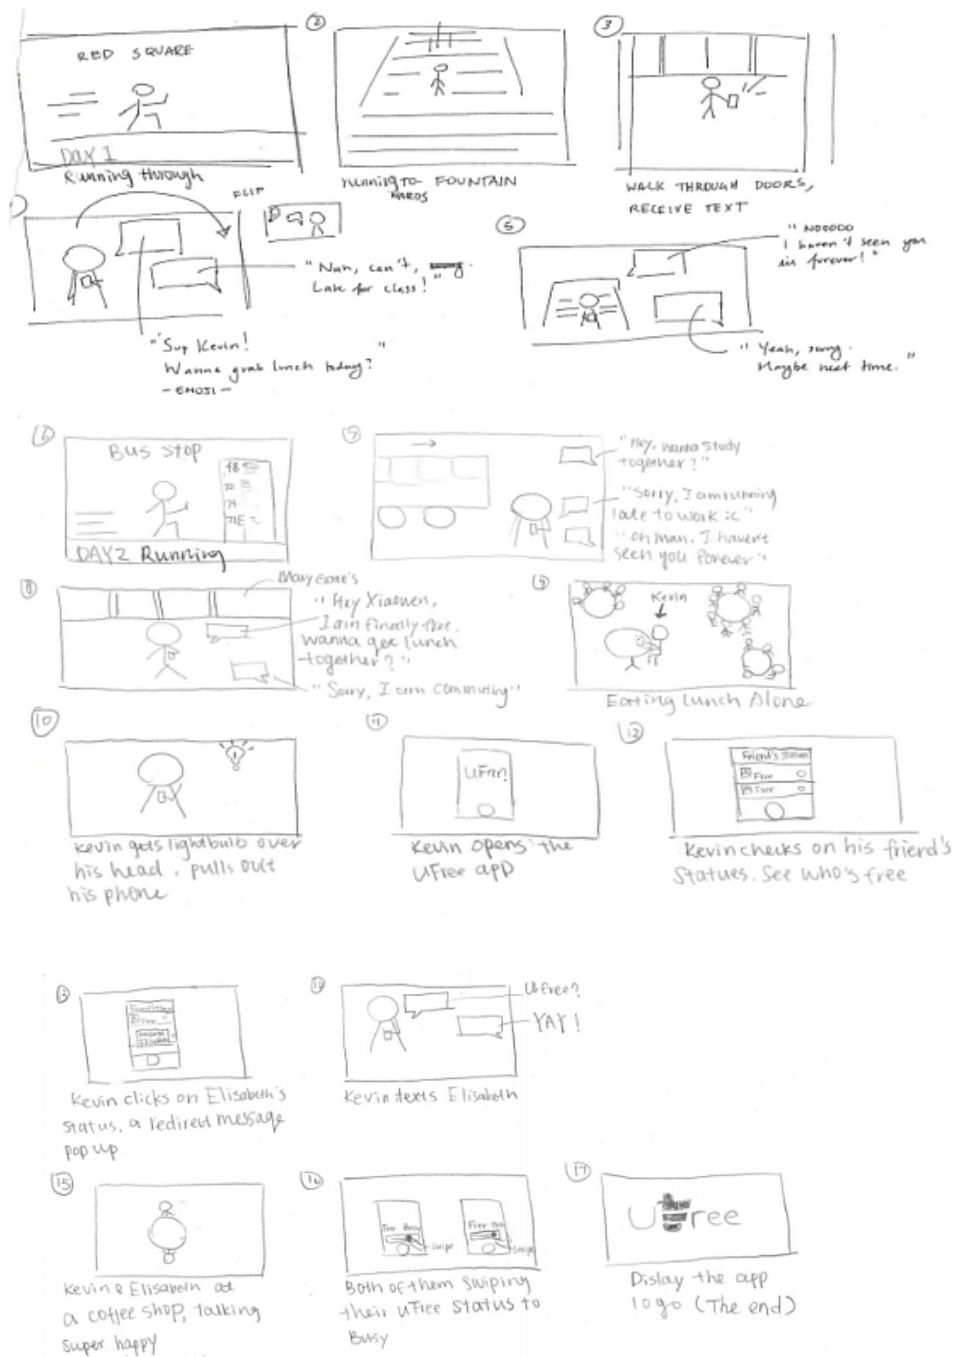 RED SQUARE
DAY 1
Running through
2
running to FOUNTAIN
3
WALK THROUGH DOORS,
RECEIVE TEXT
FLIP
"Nah, can't,
Late for class!"
"Sup Kevin!
Wanna grab lunch today?"
- EMOJI -
5
"NOOOOO
I haven't seen you
in forever!"
"Yeah, sorry.
Maybe next time."
6
Bus stop
48
72
74
DAY2 Running
"Hey, wanna study
together?"
"Sorry, I am running
late to work :c"
"Oh man, I havent
seen you forever"
8
Mary Gate's
"Hey Xiaowen,
I am finally free.
wanna get lunch
together?"
"Sorry, I am commuting"
9
Kevin
Eatting Lunch Alone
10
Kevin gets lightbulb over
his head, pulls out
his phone
11
UFree
Kevin opens the
UFree app
12
Friend's Status
Free
Free
Kevin checks on his friend's
Statues. See who's free
13
Kevin clicks on Elisabeth's
status, a redirect message
pop up
14
U Free?
YAY!
Kevin texts Elisabeth
15
Kevin & Elisabeth at
a coffee shop, talking
super happy
16
Free Busy
swipe
Free
swipe
Both of them swiping
their UFree status to
Busy
17
UFree
Dislay the app
logo (The end)